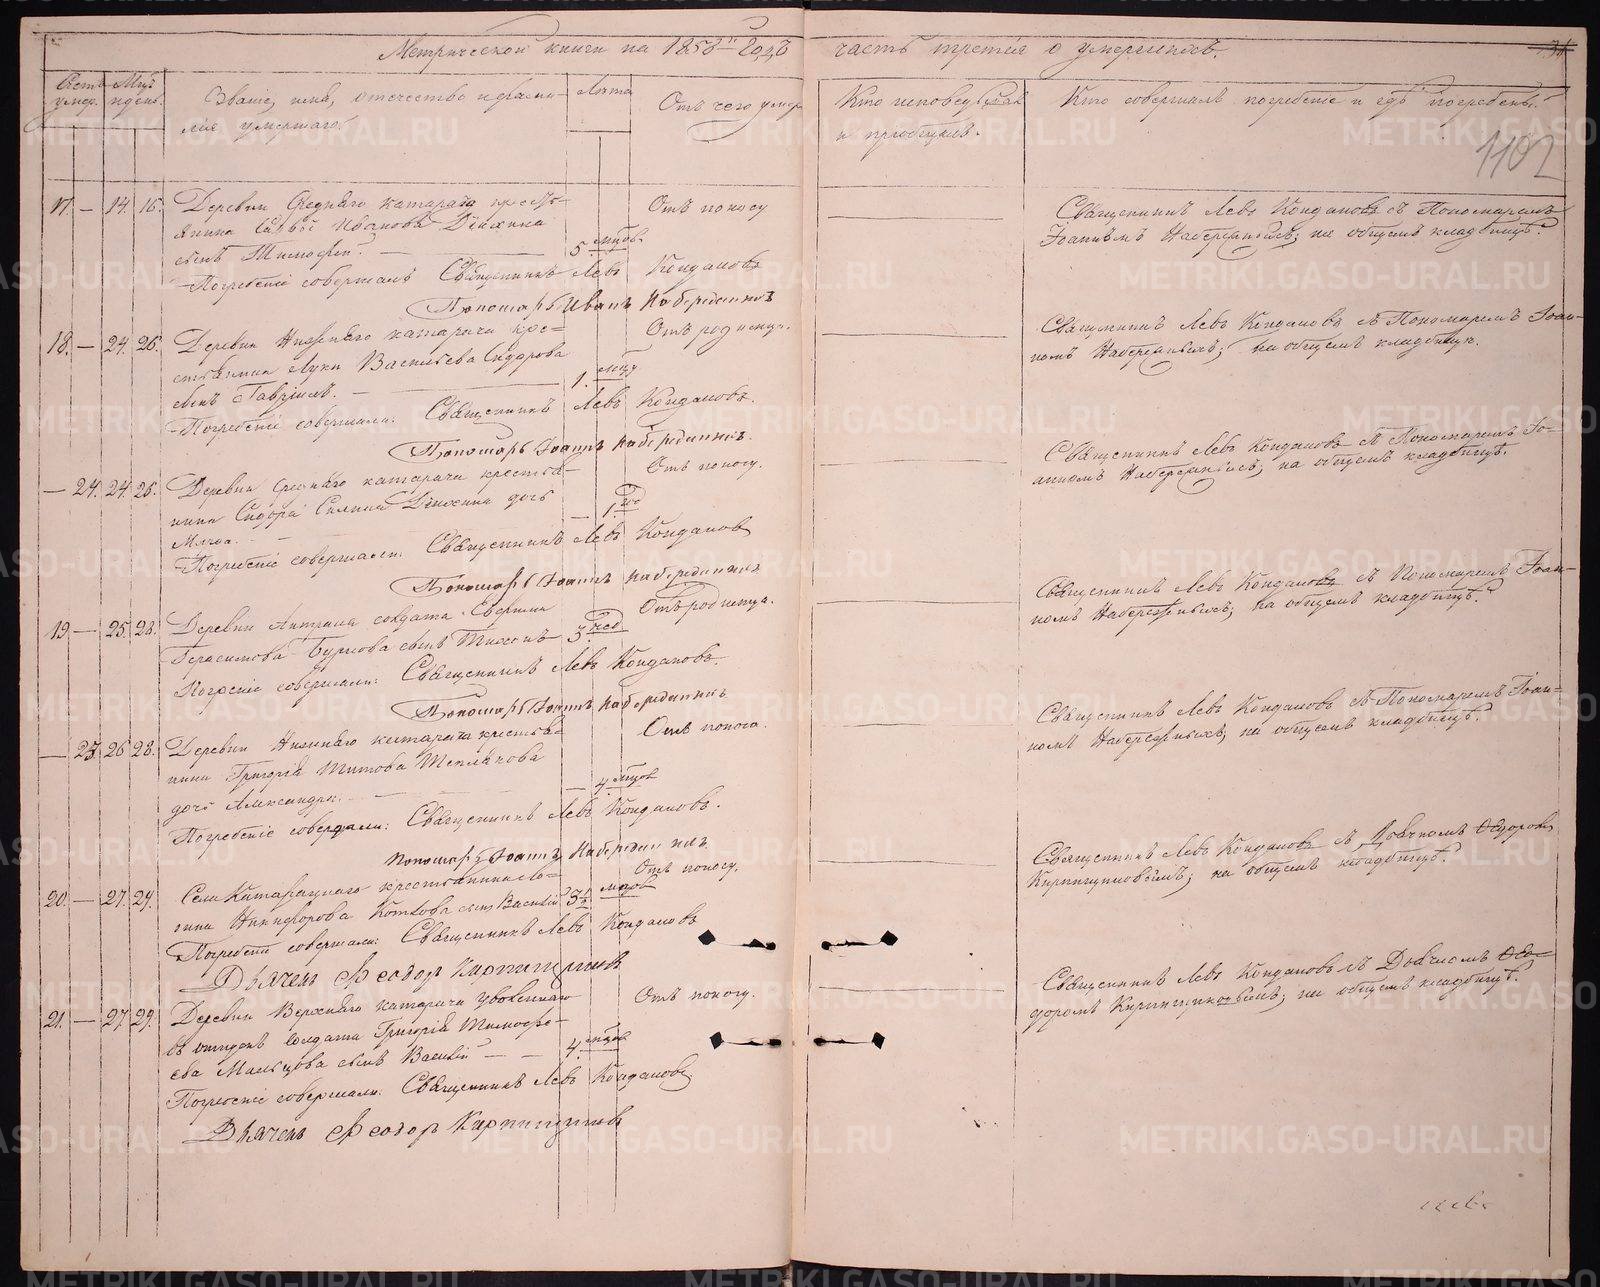 Метрической книги на 1858й Годъ часть третья о умершихъ.
Счетъ умер.
Мцъ и день.
Званіе, имя, отечество и фами-
лія умершаго.
Лѣта
Отъ чего умеръ
Кто исповедывалъ
и пріобщалъ.
Кто совершалъ погребеніе и гдѣ погребены.
1102
17. — 14. 16.
Деревни Средняго катарача кресть-
янина Иванова Дѣйкина
сынъ Тимофей.
5. мцов
Отъ поносу
Священникъ Левъ Кондаковъ съ Пономаремъ
Іоанномъ Набережныхъ; на общемъ кладбищѣ.
Погребеніе совершалъ Священникъ Левъ Кондаковъ
Пономарь Иванъ Набережныхъ
18. — 24. 26.
Деревни Нижняго катарача кре=
стьянина Луки Васильева Сидорова
сынъ Гавріилъ.
1. мцъ
Отъ родимца.
Священникъ Левъ Кондаковъ съ Пономаремъ Іоан-
номъ Набережныхъ; на общемъ кладбищѣ.
Погребеніе совершали: Священникъ Левъ Кондаковъ.
Пономарь Іоаннъ Набережныхъ.
— 24. 24. 26.
Деревни Средняго катарача крестья-
нина Сидора Дейкина дочь
1. год
Отъ поносу.
Священникъ Левъ Кондаковъ съ Пономаремъ Іо-
анномъ Набережныхъ; на общемъ кладбищѣ.
Погребеніе совершали: Священникъ Левъ Кондаковъ
Пономарь Іоаннъ Набережныхъ
19 — 25. 28.
Деревни солдата Ефрема
Герасимова сынъ Тихонъ
3. нед
Отъ родимца.
Священникъ Левъ Кондаковъ съ Пономаремъ Іоан-
номъ Набережныхъ; на общемъ кладбищѣ.
Погребеніе совершали: Священникъ Левъ Кондаковъ.
Пономарь Іоаннъ Набережныхъ
— 25 26 28.
Деревни Нижняго катарача крестья-
нина Григорія Титова Теплякова
дочь Александра.
4. мцов
Отъ поноса.
Священникъ Левъ Кондаковъ съ Пономаремъ Іоан-
номъ Набережныхъ; на общемъ кладбищѣ.
Погребеніе совершали: Священникъ Левъ Кондаковъ.
Пономарь Іоаннъ Набережныхъ.
20. — 27. 29.
Села Катарацкаго крестьянина Ло=
гина Никифорова Коткова сынъ Василій
3½ мцов
Отъ поносу.
Священникъ Левъ Кондаковъ съ Дьячкомъ Ѳедоровъ
Кирпищиковымъ; на общемъ кладбищѣ.
Погребеніе совершали: Священникъ Левъ Кондаковъ
Дьячекъ Ѳеодоръ Кирпищиковъ
21. — 27. 29.
Деревни Верхняго катарача уволеннаго
въ отпускъ солдата Григорія Тимофе-
ева Мальцова сынъ Василій
4. мцов
Отъ поносу.
Священникъ Левъ Кондаковъ съ Дьячкомъ Ѳео-
доромъ Кирпищиковымъ; на общемъ кладбищѣ.
Погребеніе совершали: Священникъ Левъ Кондаковъ
Дьячекъ Ѳеодоръ Кирпищиковъ
METRIKI.GASO-URAL.RU